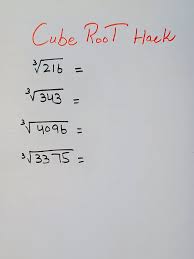 Cube Root Hack
³√216 =
³√343 =
³√4096 =
³√3375 =